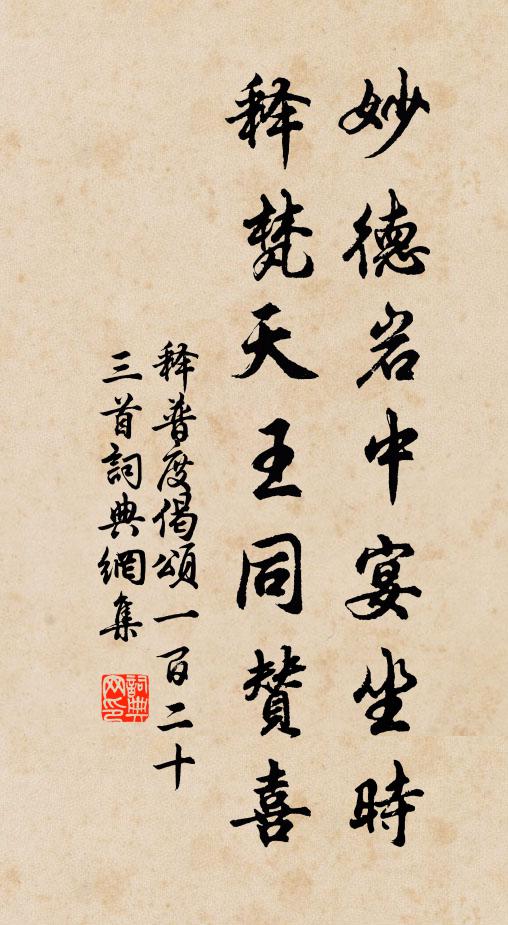 妙德岩中宴坐時
释梵天王同贊喜
释普度偈頌一百二十
三首詞典網集
詞典
网印